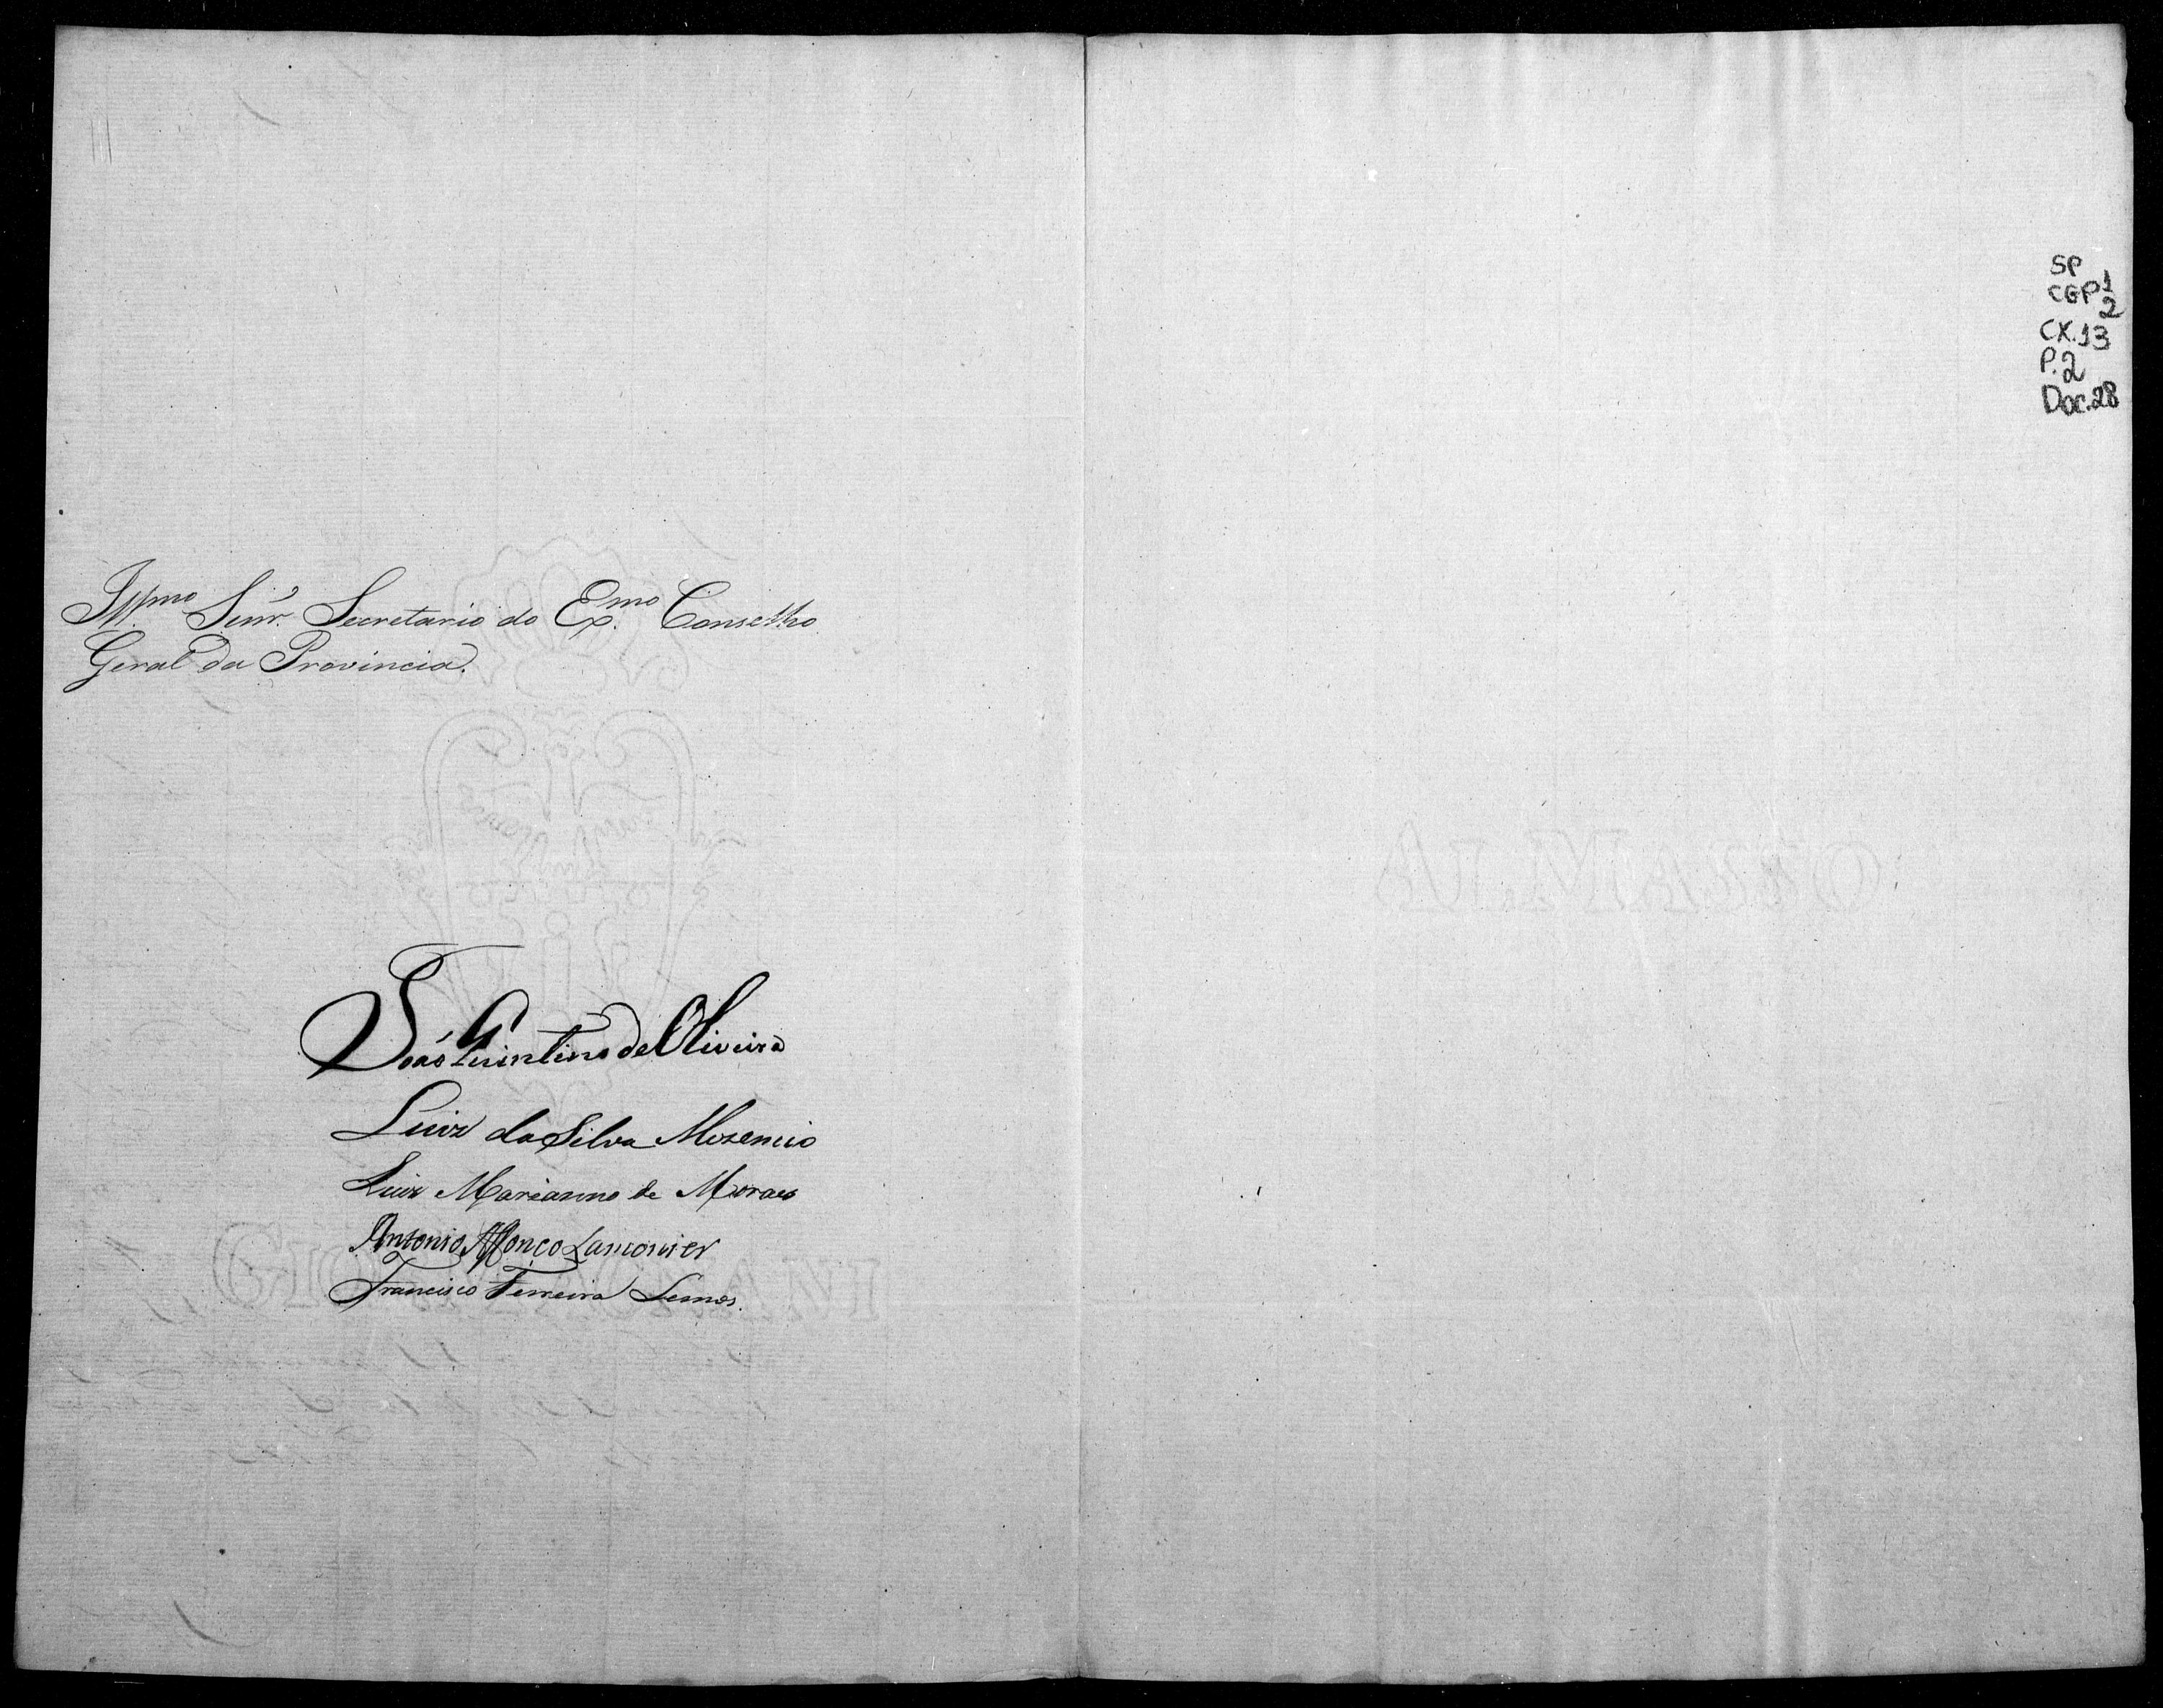 Illmo. Senr. Secretario do Exmo. Conselho
Geral da Provincia.
João Quintino de Oliveira
Luiz da Silva Mozencio
Luiz Marianno de Moraes
Antonio Affonço Lamonier
Francisco Ferreira Lemos.
SP
CGP 1
2
CX.13
P.2
Doc.28
ALMASSO
GIOR MAGNANI